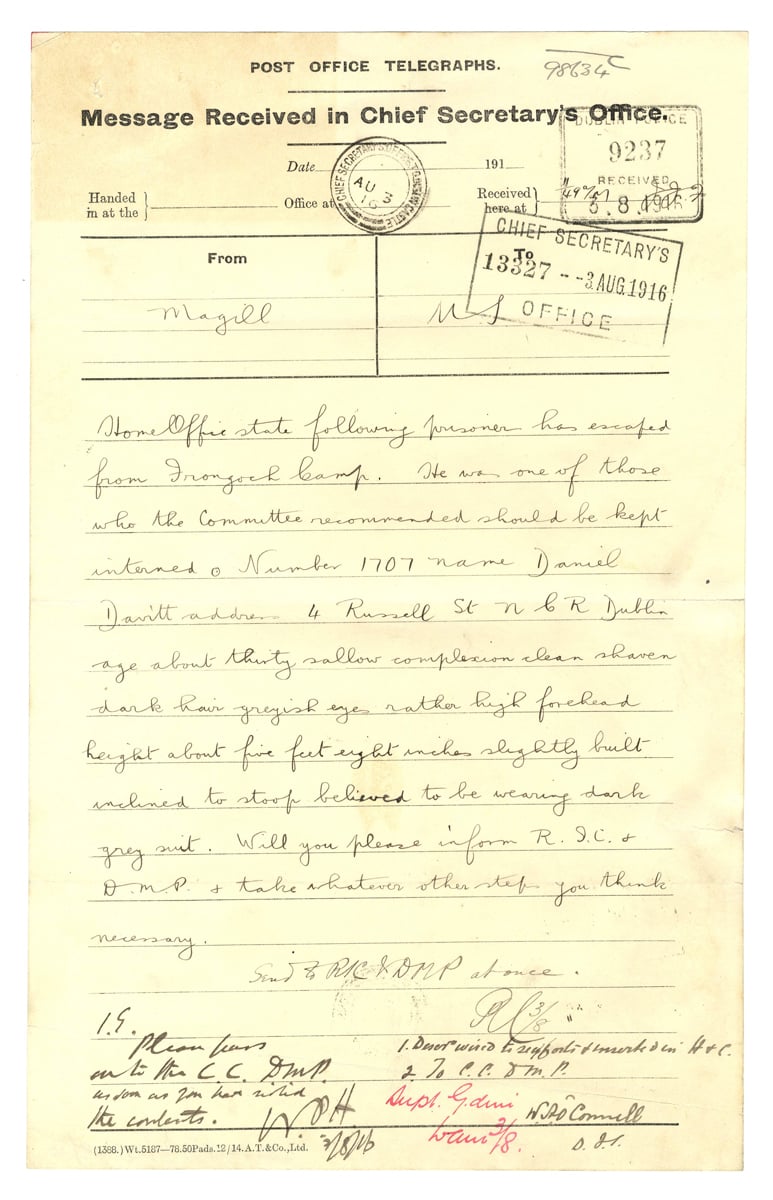 98634
POST OFFICE TELEGRAPHS.
Message Received in Chief Secretary's Office.
DUBLIN POLICE
9237
RECEIVED
3.8.1916
Date 191
CHIEF SECRETARY'S OFFICE
AU 3
16
Handed in at the
Office at
Received here at
CHIEF SECRETARY'S
13327 - -3 AUG. 1916
OFFICE
From
To
Magill
U S
Home Office state following prisoner has escaped
from Frongoch Camp. He was one of those
who the Committee recommended should be kept
interned o Number 1707 name Daniel
Davitt address 4 Russell St N C R Dublin
age about thirty sallow complexion clean shaven
dark hair greyish eyes rather high forehead
height about five feet eight inches slightly built
inclined to stoop believed to be wearing dark
grey suit. Will you please inform R.I.C. &
D.M.P. & take whatever other steps you think
necessary.
Send to RIC & DMP at once.
3/8
I.G.
Please pass
on to the C C. DMP.
as soon as you have noted
the contents.
3/8/16
1. Descr wired to seaports & inserted in H & C.
2. To C.C. D M P.
Supt. G. divn
3/8.
O'Connell
D.I.
(1388.) Wt. 5187—78.50Pads. 12/14. A.T.&Co., Ltd.